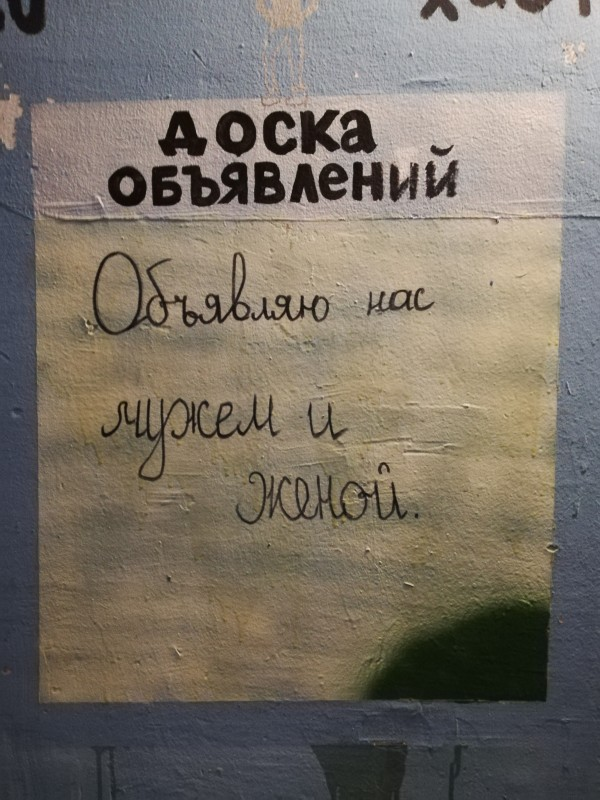 ДОСКА
ОБЪЯВЛЕНИЙ
Объявляю нас
мужем и
женой.